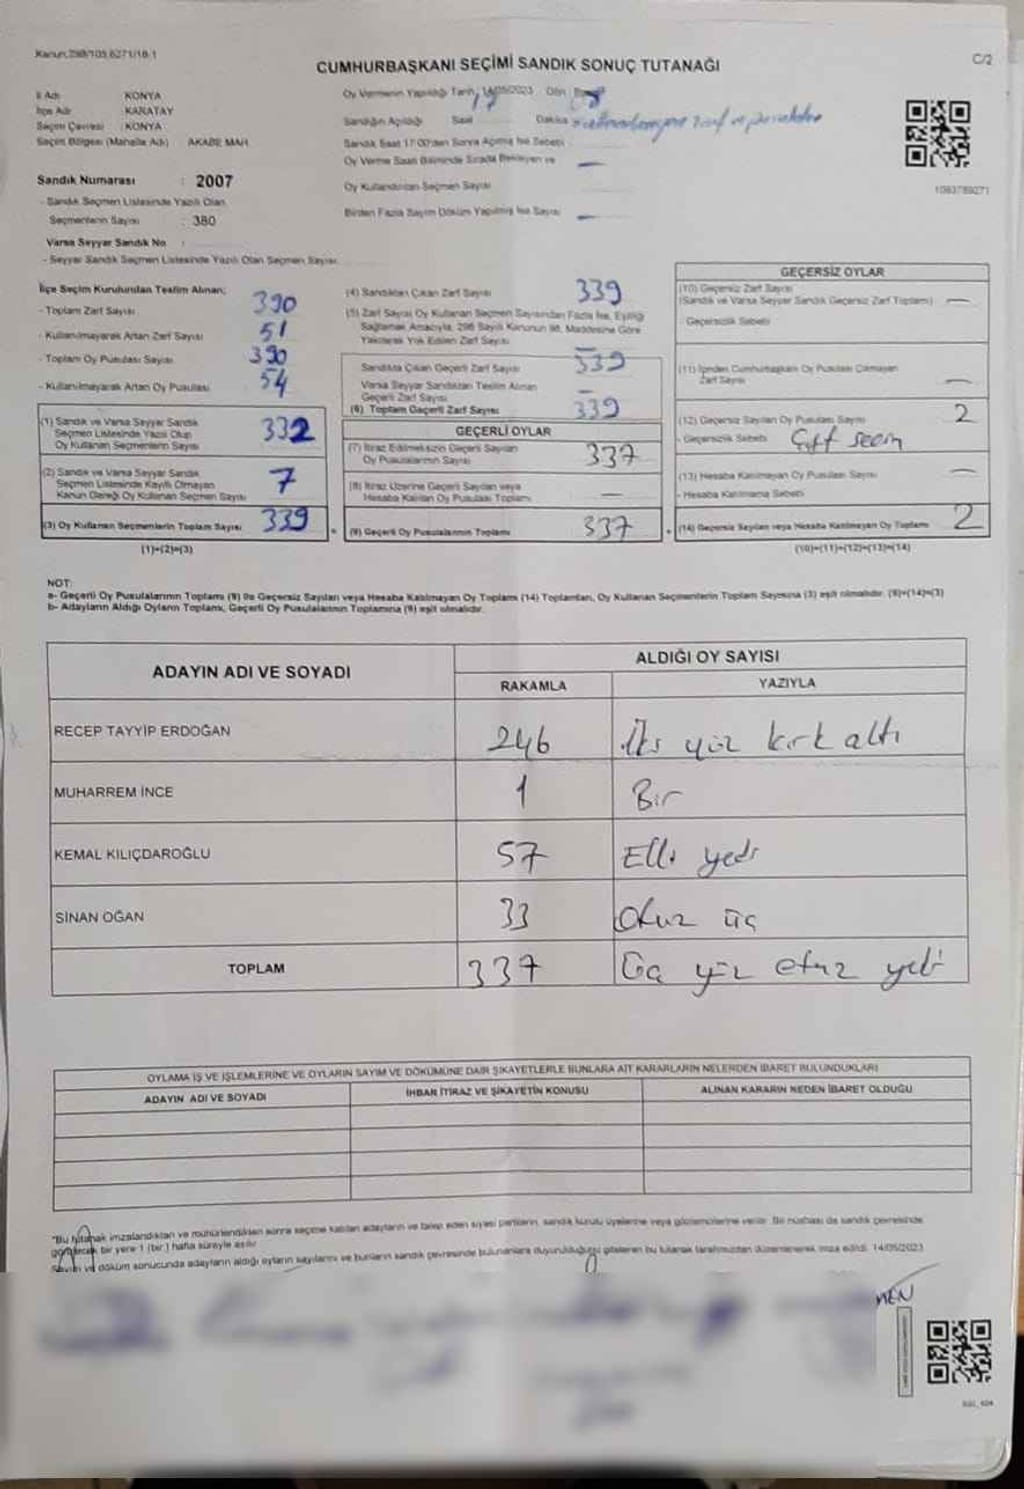 Kanun:298/105,6271/18-1
CUMHURBAŞKANI SEÇİMİ SANDIK SONUÇ TUTANAĞI
C/2
İl Adı KONYA
İlçe Adı KARATAY
Seçim Çevresi : KONYA
Seçim Bölgesi (Mahalle Adı) AKABE MAH.
Sandık Numarası : 2007
- Sandık Seçmen Listesinde Yazılı Olan
Seçmenlerin Sayısı : 380
Varsa Seyyar Sandık No :
- Seyyar Sandık Seçmen Listesinde Yazılı Olan Seçmen Sayısı
Oy Vermenin Yapıldığı Tarih 14/05/2023 Dön
Sandığın Açıldığı Saat Dakika
Sandık Saat 17:00'den Sonra Açılmış İse Sebebi
Oy Verme Saati Bitiminde Sırada Bekleyen ve
Oy Kullandırılan Seçmen Sayısı
Birden Fazla Sayım Döküm Yapılmış İse Sayısı
1083789271
İlçe Seçim Kurulundan Teslim Alınan;
- Toplam Zarf Sayısı 390
- Kullanılmayarak Artan Zarf Sayısı 51
- Toplam Oy Pusulası Sayısı 390
- Kullanılmayarak Artan Oy Pusulası 54
(1) Sandık ve Varsa Seyyar Sandık
Seçmen Listesinde Yazılı Olup
Oy Kullanan Seçmenlerin Sayısı 332
(2) Sandık ve Varsa Seyyar Sandık
Seçmen Listesinde Kayıtlı Olmayan
Kanun Gereği Oy Kullanan Seçmen Sayısı 7
(3) Oy Kullanan Seçmenlerin Toplam Sayısı 339
(1)+(2)=(3)
(4) Sandıktan Çıkan Zarf Sayısı 339
(5) Zarf Sayısı Oy Kullanan Seçmen Sayısından Fazla İse, Eşitliği
Sağlamak Amacıyla, 298 Sayılı Kanunun 98. Maddesine Göre
Yakılarak Yok Edilen Zarf Sayısı —
Sandıkta Çıkan Geçerli Zarf Sayısı 339
Varsa Seyyar Sandıktan Teslim Alınan
Geçerli Zarf Sayısı —
(6) Toplam Geçerli Zarf Sayısı 339
GEÇERLİ OYLAR
(7) İtiraz Edilmeksizin Geçerli Sayılan
Oy Pusulalarının Sayısı 337
(8) İtiraz Üzerine Geçerli Sayılan veya
Hesaba Katılan Oy Pusulası Toplamı —
(9) Geçerli Oy Pusulalarının Toplamı 337
GEÇERSİZ OYLAR
(10) Geçersiz Zarf Sayısı
(Sandık ve Varsa Seyyar Sandık Geçersiz Zarf Toplamı) —
- Geçersizlik Sebebi
(11) İçinden Cumhurbaşkanı Oy Pusulası Çıkmayan
Zarf Sayısı —
(12) Geçersiz Sayılan Oy Pusulası Sayısı 2
- Geçersizlik Sebebi
(13) Hesaba Katılmayan Oy Pusulası Sayısı —
- Hesaba Katılmama Sebebi
(14) Geçersiz Sayılan veya Hesaba Katılmayan Oy Toplamı 2
(10)+(11)+(12)+(13)=(14)
NOT:
a- Geçerli Oy Pusulalarının Toplamı (9) ile Geçersiz Sayılan veya Hesaba Katılmayan Oy Toplamı (14) Toplamları, Oy Kullanan Seçmenlerin Toplam Sayısına (3) eşit olmalıdır. (9)+(14)=(3)
b- Adayların Aldığı Oyların Toplamı, Geçerli Oy Pusulalarının Toplamına (9) eşit olmalıdır.
ADAYIN ADI VE SOYADI
ALDIĞI OY SAYISI
RAKAMLA YAZIYLA
RECEP TAYYİP ERDOĞAN 246 İki yüz kırk altı
MUHARREM İNCE 1 Bir
KEMAL KILIÇDAROĞLU 57 Elli yedi
SİNAN OĞAN 33 Otuz üç
TOPLAM 337 Üç yüz otuz yedi
OYLAMA İŞ VE İŞLEMLERİNE VE OYLARIN SAYIM VE DÖKÜMÜNE DAİR ŞİKAYETLERLE BUNLARA AİT KARARLARIN NELERDEN İBARET BULUNDUKLARI
ADAYIN ADI VE SOYADI İHBAR İTİRAZ VE ŞİKAYETİN KONUSU ALINAN KARARIN NEDEN İBARET OLDUĞU
"Bu tutanak imzalandıktan ve mühürlendikten sonra seçime katılan adayların ve talep eden siyasi partilerin, sandık kurulu üyelerine veya gözlemcilerine verilir. Bir nüshası da sandık çevresinde
görülecek bir yere 1 (bir) hafta süreyle asılır.
Sayım ve döküm sonucunda adayların aldığı oyların sayılarını ve bunların sandık çevresinde bulunanlara duyurulduğunu gösteren bu tutanak tarafımızdan düzenlenerek imza edildi. 14/05/2023
MEN